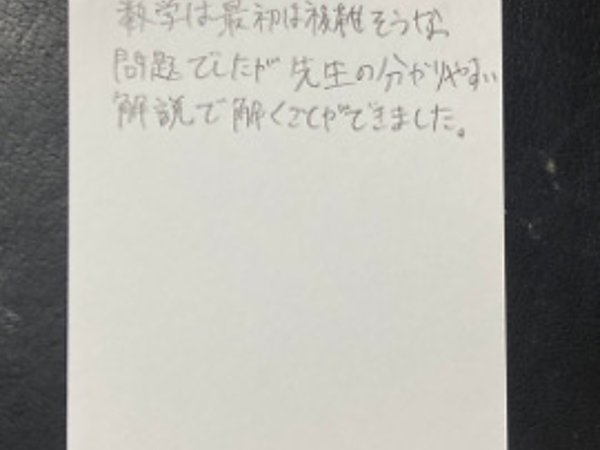 数学は最初は複雑そうな
問題でしたが先生の分かりやすい
解説で解くことができました。